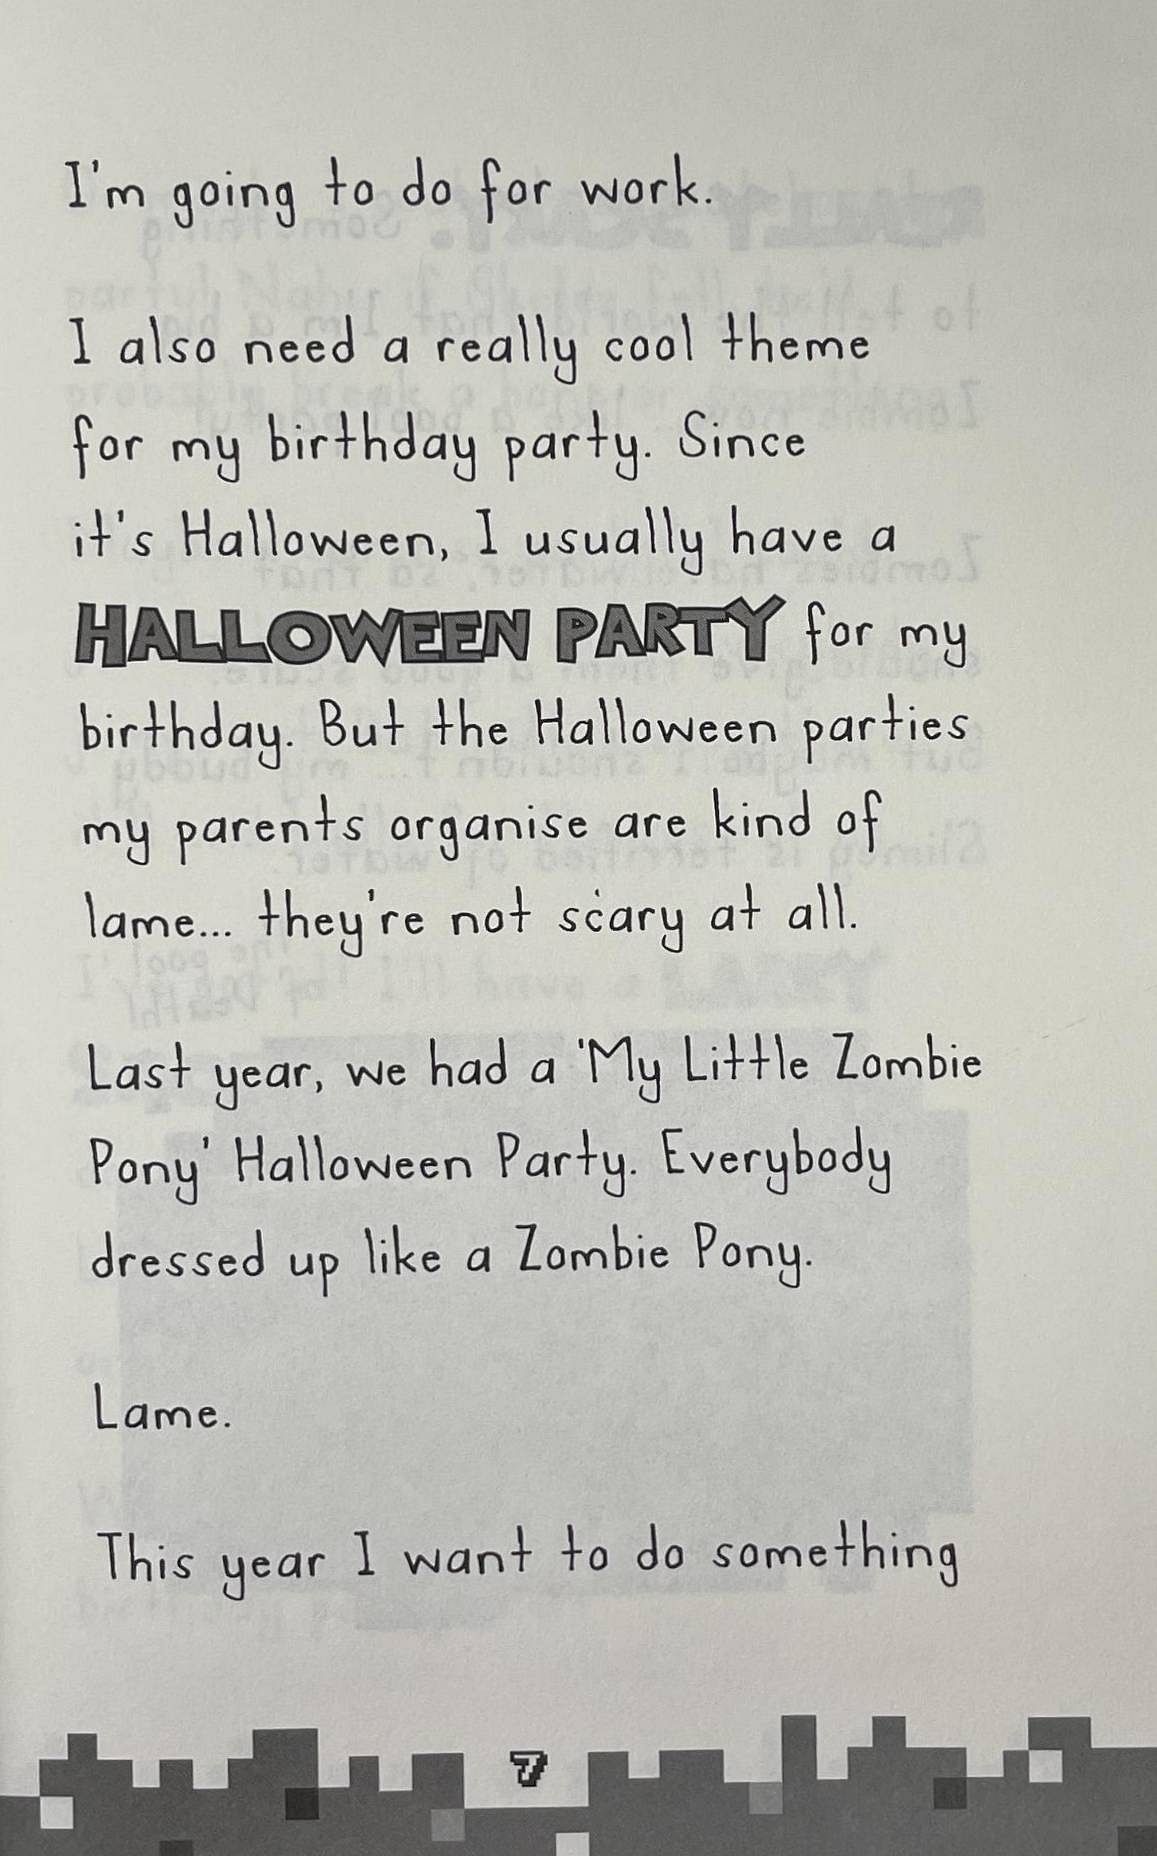 I'm going to do for work.
I also need a really cool theme
for my birthday party. Since
it's Halloween, I usually have a
HALLOWEEN PARTY for my
birthday. But the Halloween parties
my parents organise are kind of
lame... they're not scary at all.
Last year, we had a 'My Little Zombie
Pony' Halloween Party. Everybody
dressed up like a Zombie Pony.
Lame.
This year I want to do something
7